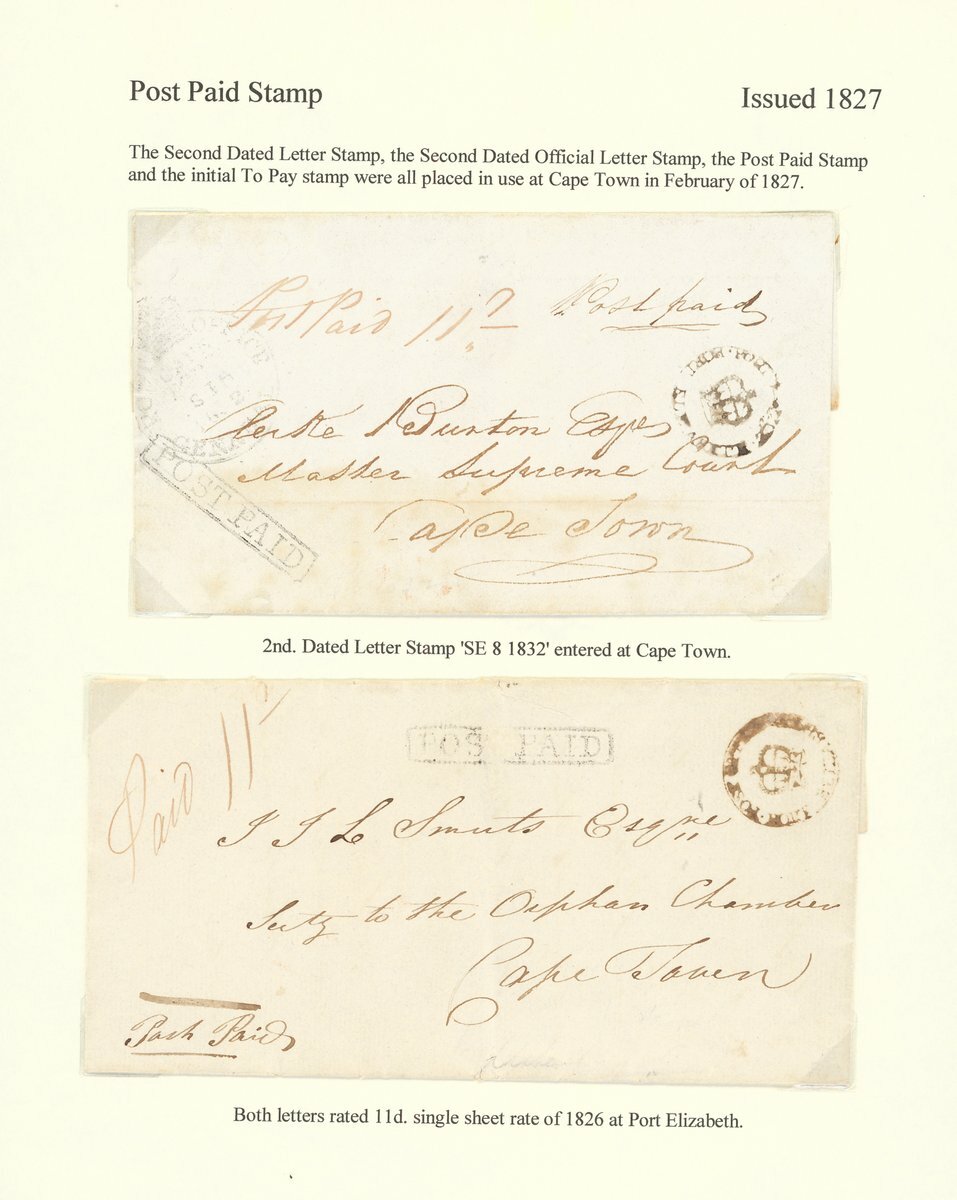 Post Paid Stamp
Issued 1827
The Second Dated Letter Stamp, the Second Dated Official Letter Stamp, the Post Paid Stamp
and the initial To Pay stamp were all placed in use at Cape Town in February of 1827.
Post Paid 11
Post paid
Burton Esqre
Master Supreme Court
Cape Town
POST PAID
2nd. Dated Letter Stamp 'SE 8 1832' entered at Cape Town.
Paid 11
POST PAID
J J L Smuts Esqre
to the Orphan Chamber
Cape Town
Post Paid
Both letters rated 11d. single sheet rate of 1826 at Port Elizabeth.